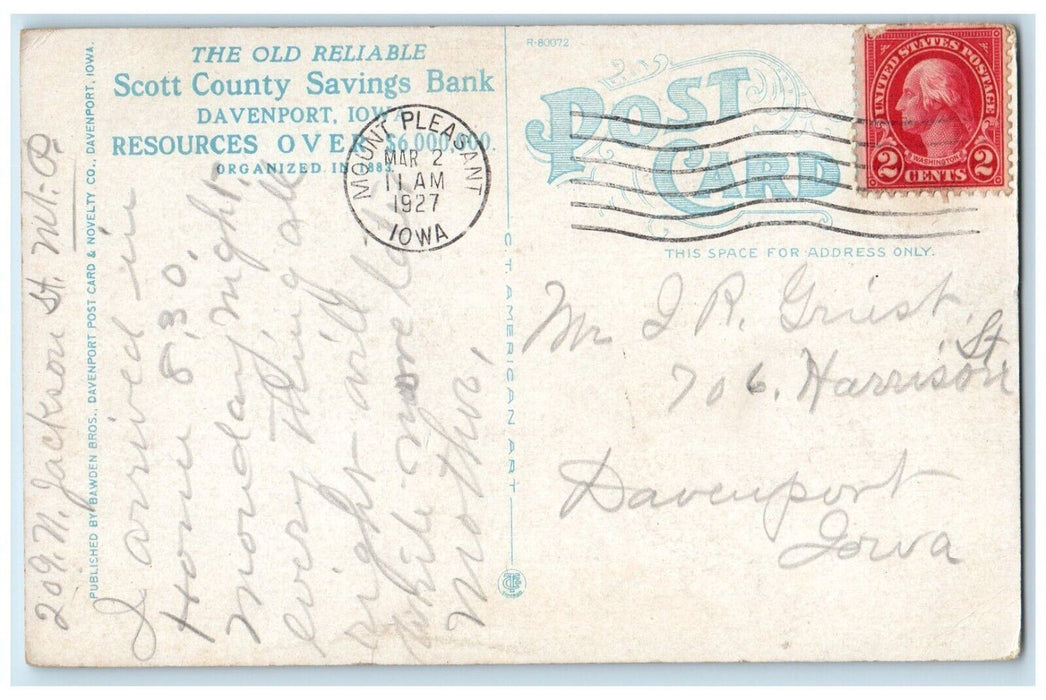 THE OLD RELIABLE
Scott County Savings Bank
DAVENPORT, IOWA
RESOURCES OVER $6,000,000.
ORGANIZED IN 1883.
PUBLISHED BY BAWDEN BROS., DAVENPORT POST CARD & NOVELTY CO., DAVENPORT, IOWA.
209. N. Jackson St. Mt. P.
I arrived in
Home 8.30.
monday night.
every thing all
right will
write more later
Mother,
MOUNT PLEASANT
MAR 2
11 AM
1927
IOWA
C.T. AMERICAN ART
R-80072
POST
CARD
THIS SPACE FOR ADDRESS ONLY.
UNITED STATES POSTAGE
WASHINGTON
2 CENTS 2
Mr J R. Griest,
706. Harrison St.
Davenport
Iowa